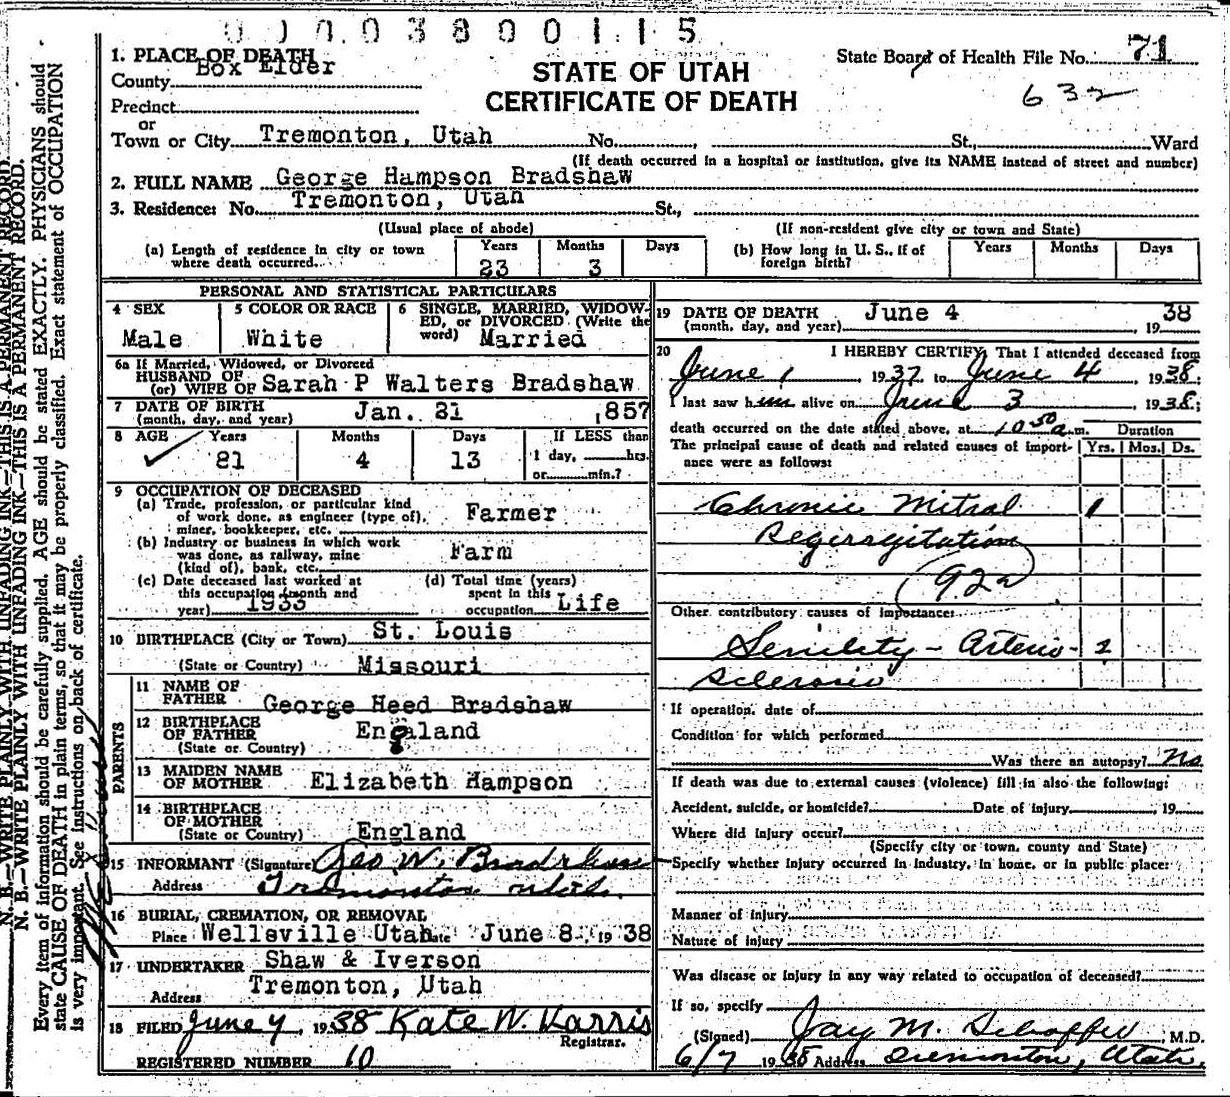 0 0 0.0 3 8 0 0 1 1 5
1. PLACE OF DEATH
County Box Elder
STATE OF UTAH
CERTIFICATE OF DEATH
State Board of Health File No. 71
632
Precinct
or
Town or City Tremonton, Utah No. , St., Ward
(If death occurred in a hospital or institution, give its NAME instead of street and number)
2. FULL NAME George Hampson Bradshaw
3. Residence: No. Tremonton, Utah St.,
(Usual place of abode) (If non-resident give city or town and State)
(a) Length of residence in city or town where death occurred. Years 23 Months 3 Days
(b) How long in U. S., if of foreign birth? Years Months Days
PERSONAL AND STATISTICAL PARTICULARS
4 SEX Male
5 COLOR OR RACE White
6 SINGLE, MARRIED, WIDOW-
ED, or DIVORCED (Write the
word) Married
6a If Married, Widowed, or Divorced
HUSBAND OF
(or) WIFE OF Sarah P Walters Bradshaw
7 DATE OF BIRTH
(month, day, and year) Jan. 21 1857
8 AGE Years 81 Months 4 Days 13
If LESS than
1 day, hrs.
or min.?
9 OCCUPATION OF DECEASED
(a) Trade, profession, or particular kind
of work done, as engineer (type of), Farmer
miner, bookkeeper, etc.
(b) Industry or business in which work
was done, as railway, mine Farm
(kind of), bank, etc.
(c) Date deceased last worked at
this occupation (month and
year) 1933
(d) Total time (years)
spent in this
occupation Life
10 BIRTHPLACE (City or Town) St. Louis
(State or Country) Missouri
PARENTS
11 NAME OF
FATHER George Heed Bradshaw
12 BIRTHPLACE
OF FATHER England
(State or Country)
13 MAIDEN NAME
OF MOTHER Elizabeth Hampson
14 BIRTHPLACE
OF MOTHER
(State or Country) England
15 INFORMANT (Signature) Geo. W. Bradshaw
Address Tremonton Utah.
16 BURIAL, CREMATION, OR REMOVAL
Place Wellsville Utah Date June 8, 19 38
17 UNDERTAKER Shaw & Iverson
Address Tremonton, Utah
18 FILED June 7, 1938 Kate W. Harris
Registrar.
REGISTERED NUMBER 10
19 DATE OF DEATH June 4 38
(month, day, and year) , 19
20 I HEREBY CERTIFY, That I attended deceased from
June 1, 1937 to June 4, 1938.
I last saw him alive on June 3, 1938;
death occurred on the date stated above, at 10 50 a m. Duration
The principal cause of death and related causes of import-
ance were as follows: Yrs. Mos. Ds.
Chronic Mitral 1
Regurgitation
92a
Other contributory causes of importance:
Senility - Arterio- 2
Sclerosis
If operation, date of
Condition for which performed
Was there an autopsy? No
If death was due to external causes (violence) fill in also the following:
Accident, suicide, or homicide? Date of injury , 19
Where did injury occur?
(Specify city or town, county and State)
Specify whether injury occurred in industry, in home, or in public place:
Manner of injury
Nature of injury
Was disease or injury in any way related to occupation of deceased?
If so, specify
(Signed) Jay M. Schaffer, M.D.
6/7 1938 Address Tremonton, Utah.
N. B.—WRITE PLAINLY WITH UNFADING INK—THIS IS A PERMANENT RECORD.
N. B.—WRITE PLAINLY WITH UNFADING INK—THIS IS A PERMANENT RECORD.
Every item of information should be carefully supplied. AGE should be stated EXACTLY. PHYSICIANS should
state CAUSE OF DEATH in plain terms, so that it may be properly classified. Exact statement of OCCUPATION
is very important. See instructions on back of certificate.